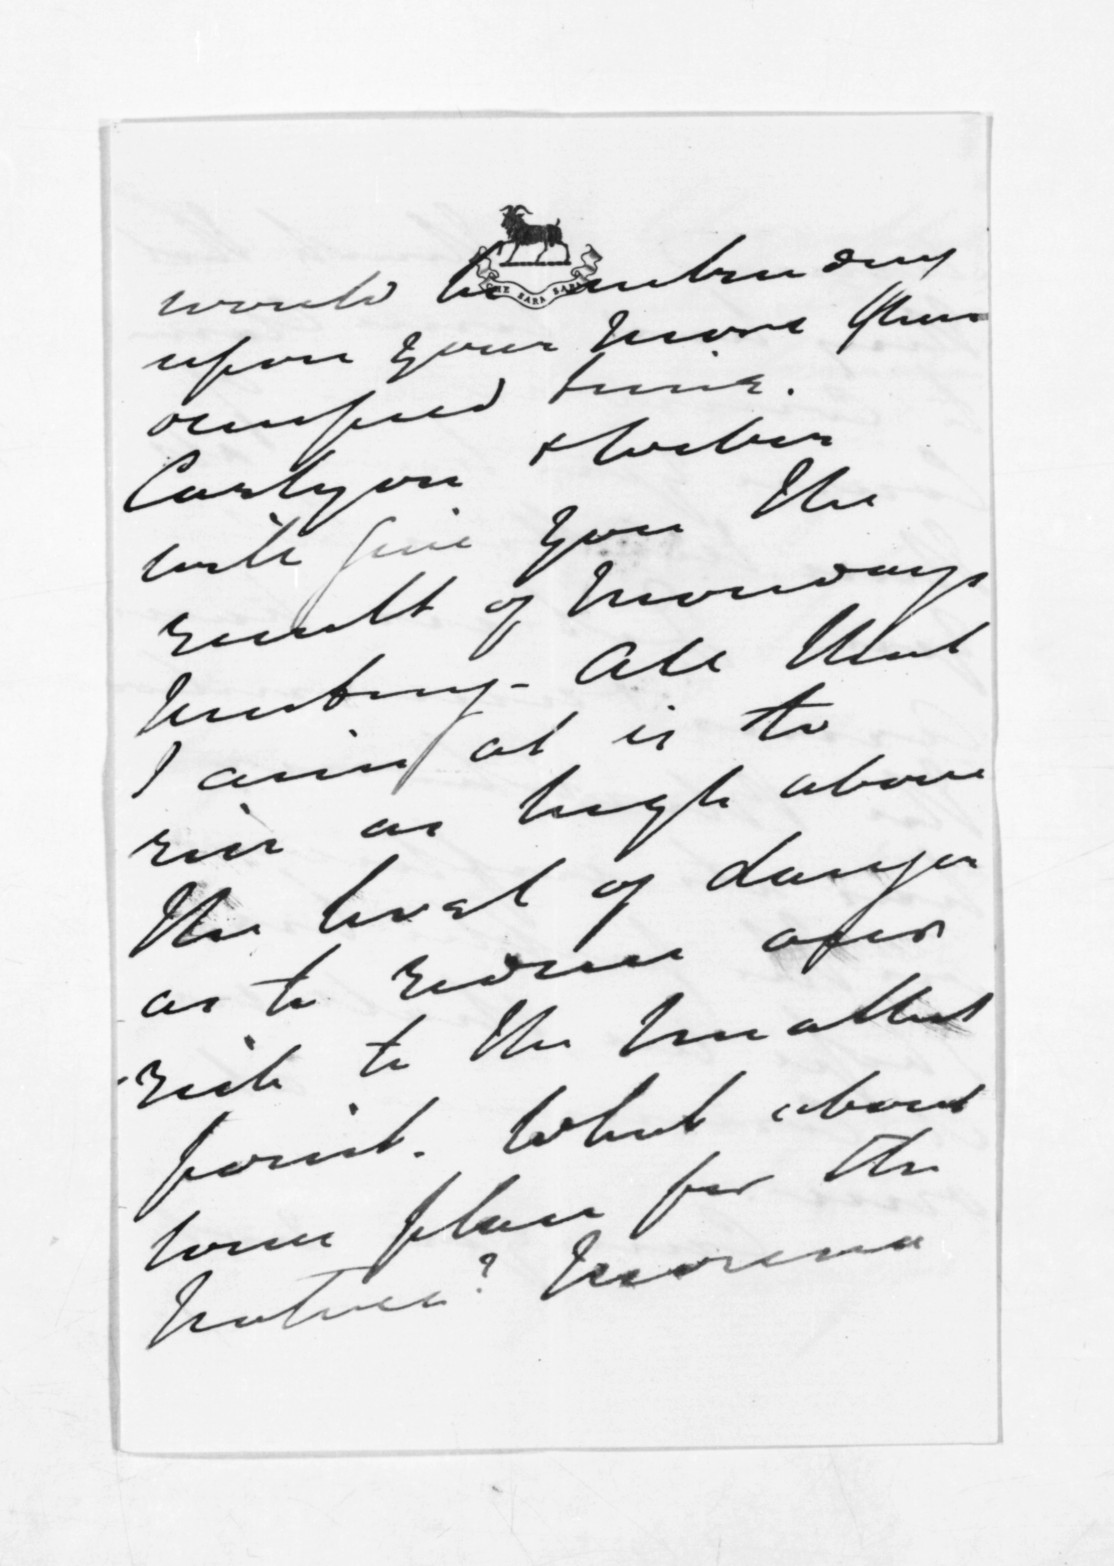 CHE SARA SARA
would be intruding
upon your more than
occupied time.
Carlyon & Locker
will give you the
result of Mondays
meeting. All that
I aim at is to
rise as high above
the level of danger
as to reduce our
risk to the smallest
point. What about
some plan for the
Natives?